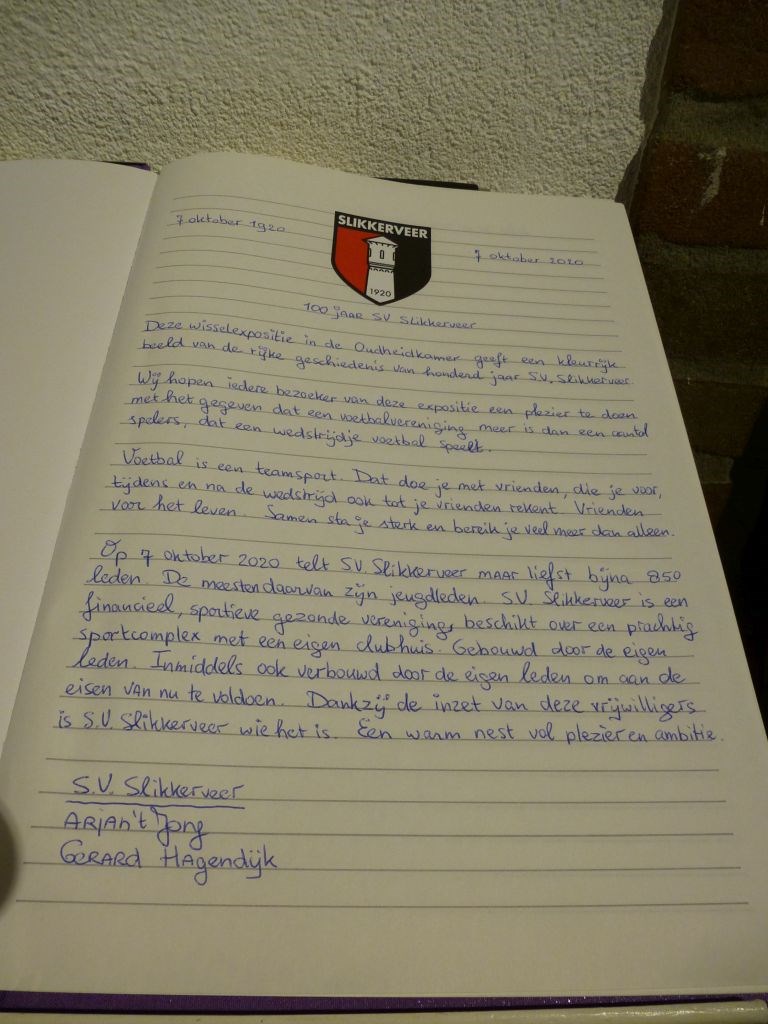 7 oktober 1920
SLIKKERVEER
1920
7 oktober 2020
100 jaar SV Slikkerveer
Deze wisselexpositie in de Oudheidkamer geeft een kleurrijk
beeld van de rijke geschiedenis van honderd jaar S.V. Slikkerveer.
Wij hopen iedere bezoeker van deze expositie een plezier te doen
met het gegeven dat een voetbalvereniging meer is dan een aantal
spelers, dat een wedstrijdje voetbal speelt.
Voetbal is een teamsport. Dat doe je met vrienden, die je voor,
tijdens en na de wedstrijd ook tot je vrienden rekent. Vrienden
voor het leven. Samen sta je sterk en bereik je veel meer dan alleen.
Op 7 oktober 2020 telt S.V. Slikkerveer maar liefst bijna 850
leden. De meesten daarvan zijn jeugdleden. S.V. Slikkerveer is een
financieel, sportieve gezonde vereniging, beschikt over een prachtig
sportcomplex met een eigen clubhuis. Gebouwd door de eigen
leden. Inmiddels ook verbouwd door de eigen leden om aan de
eisen van nu te voldoen. Dankzij de inzet van deze vrijwilligers
is S.V. Slikkerveer wie het is. Een warm nest vol plezier en ambitie.
S.V. Slikkerveer
Arjan 't Jong
Gerard Hagendijk